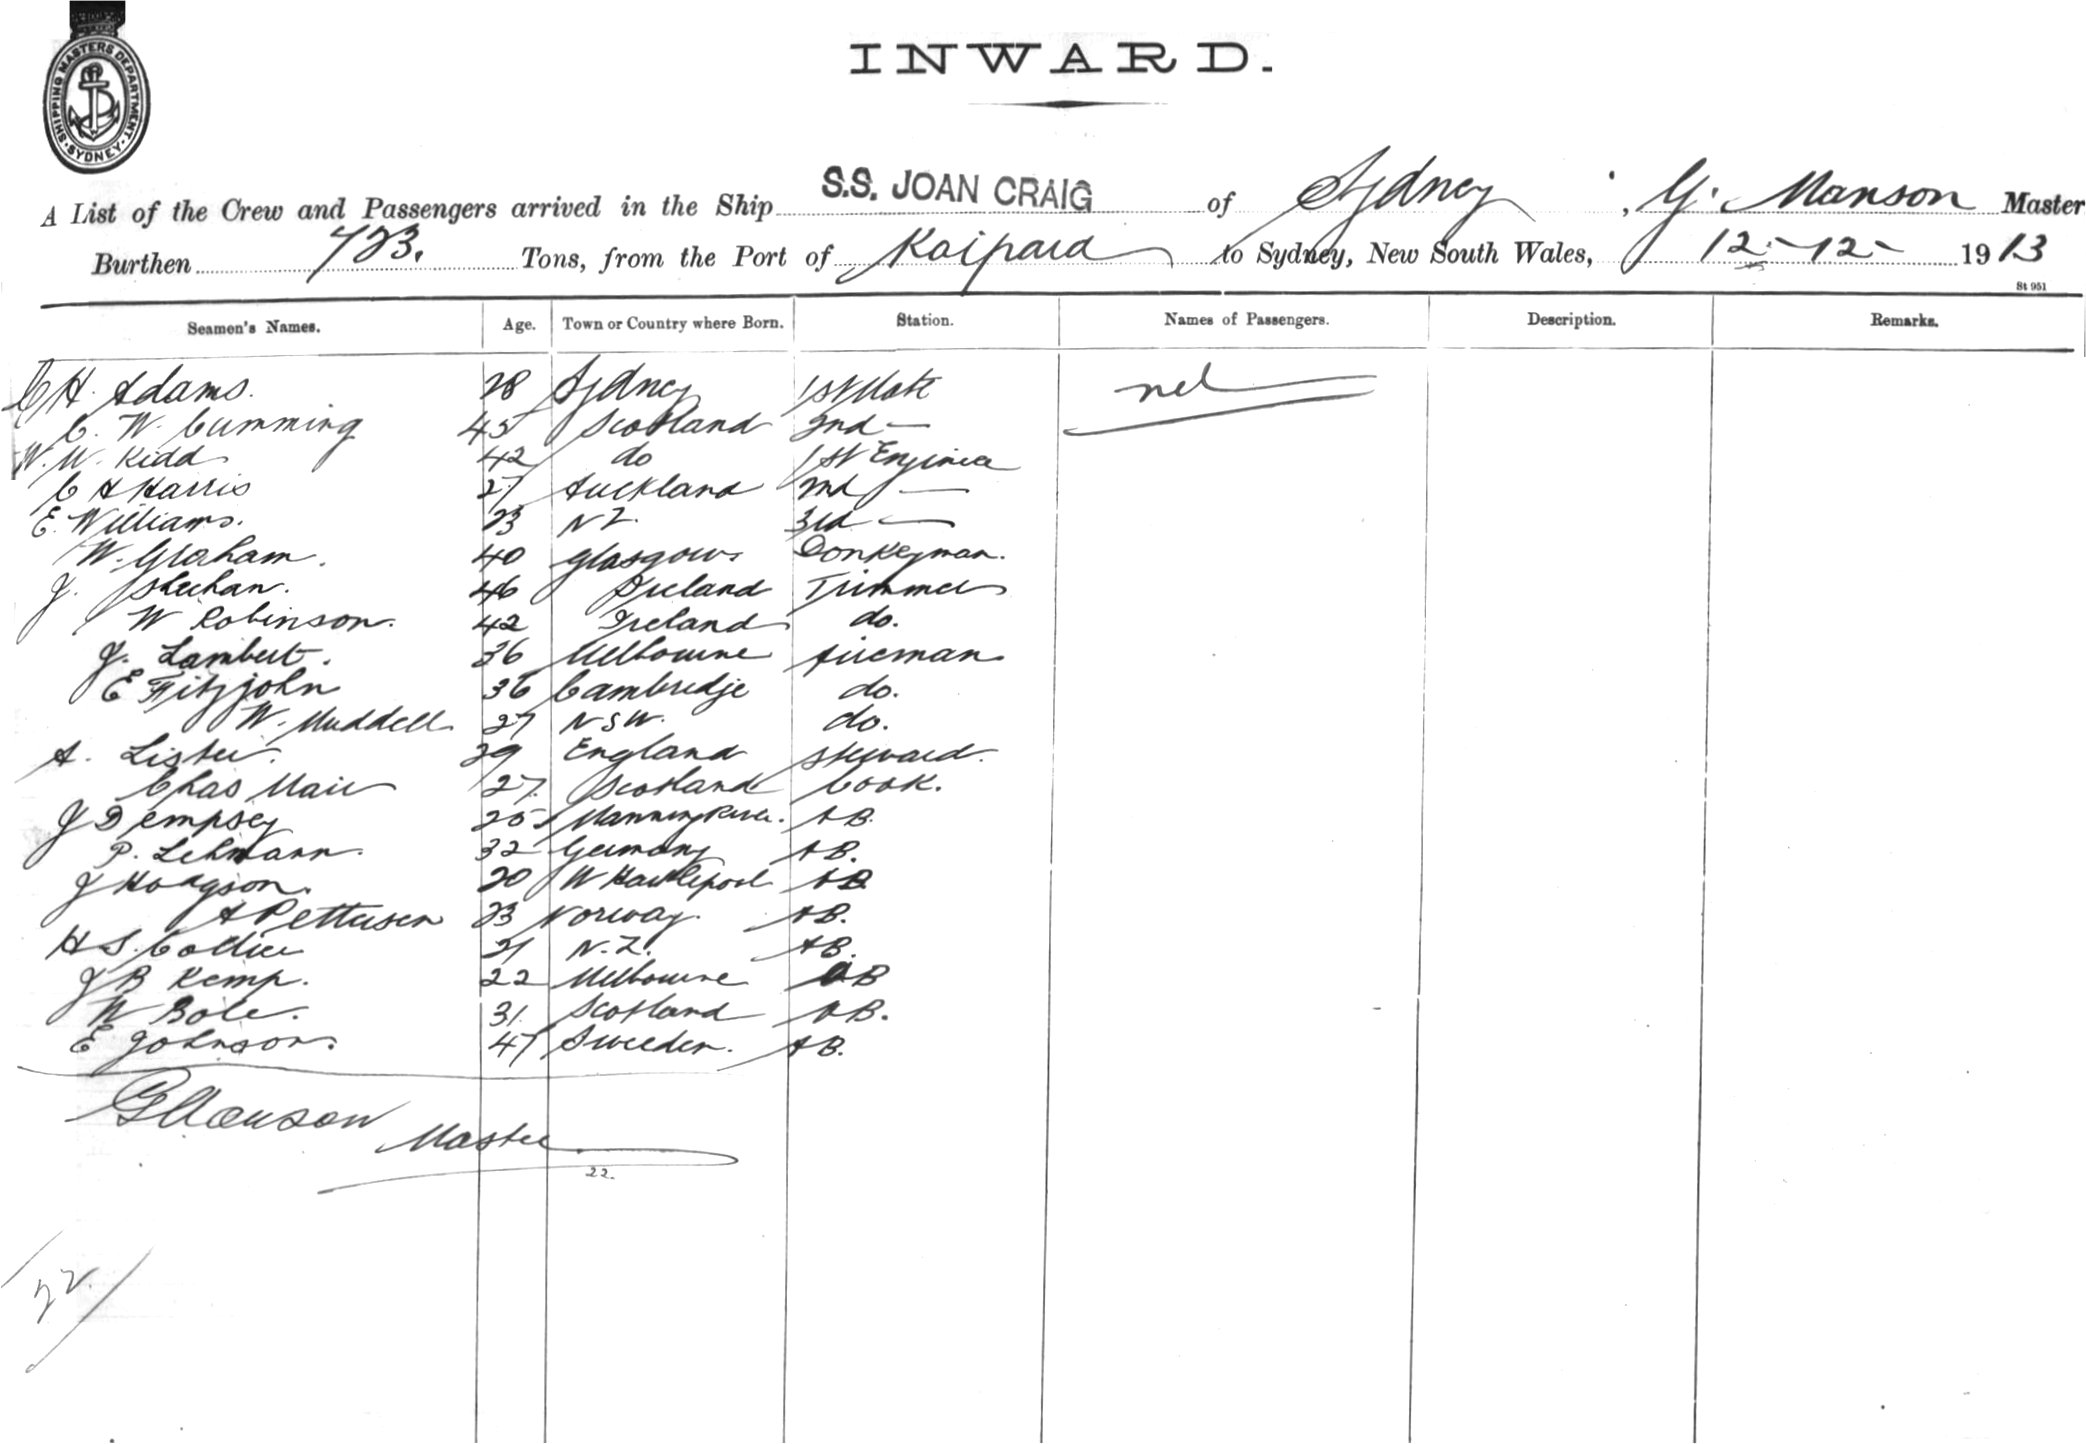 SHIPPING MASTERS DEPARTMENT
SYDNEY
INWARD.
A List of the Crew and Passengers arrived in the Ship S.S. JOAN CRAIG of Sydney, G. Manson Master
Burthen 723. Tons, from the Port of Kaipara to Sydney, New South Wales, 12-12-1913
St 951
Seamen's Names. Age. Town or Country where Born. Station. Names of Passengers. Description. Remarks.
C H. Adams. 28 Sydney 1st Mate nil
C. W. Cumming 45 Scotland 2nd —
W. W. Kidd 42 do 1st Engineer
C A Harris 27 Auckland 2nd —
E. Williams. 23 N Z. 3rd —
W. Graham. 40 Glasgow. Donkeyman.
J. Sheehan. 46 Ireland Trimmer
W Robinson. 42 Ireland do.
J. Lambert. 36 Melbourne fireman
E Fitzjohn 36 Cambridge do.
W. Muddell 27 N S W. do.
A. Lister. 29 England Steward.
Chas Mair 27. Scotland Cook.
J Dempsey 25 Manning River. A B.
P. Lehmann. 32 Germany A B.
J Hodgson. 20 W Hartlepool A B
A Pettersen 23 Norway. A B.
H S. Collier 21 N. Z. A B.
J B Kemp. 22 Melbourne A B
W Bole. 31. Scotland A B.
E Johnson. 47 Sweeden. A B.
G Manson Master
22.
22.